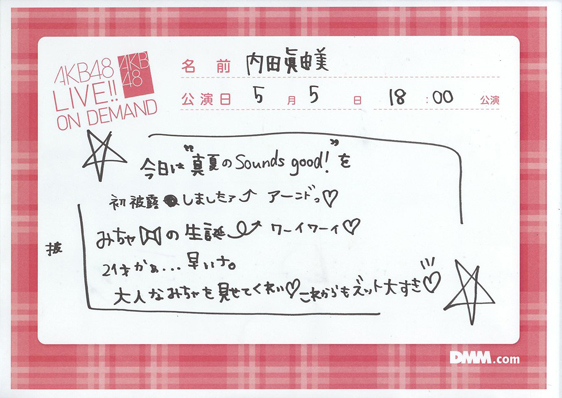 AKB48
LIVE!!
ON DEMAND
AKB
48
名 前 内田眞由美
公演日 5 月 5 日 18 : 00 公演
今日は"真夏のSounds good!"を
初披露しましたァ アーンドっ♡
みちゃの生誕 ワーイワーイ♡
21才かぁ...早いナ。
大人なみちゃを見せてくれい♡これからもズット大すき♡
DMM.com